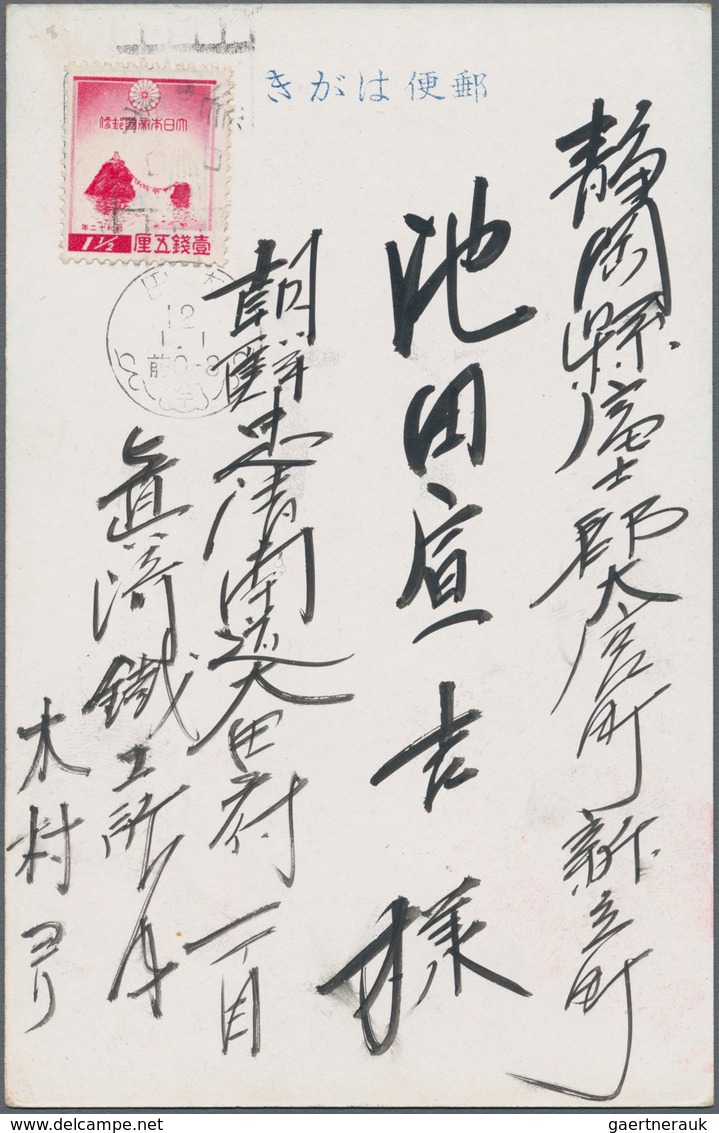 郵便はがき
静岡縣富士郡大宮町新立町
池田宣吉様
朝鮮忠清南道大田府
一丁目
眞崎鐵工所
木村ヨリ
大日本帝國郵便
二十年
1½
壹錢五厘
12
1.1
前0-8
gaertnerauk